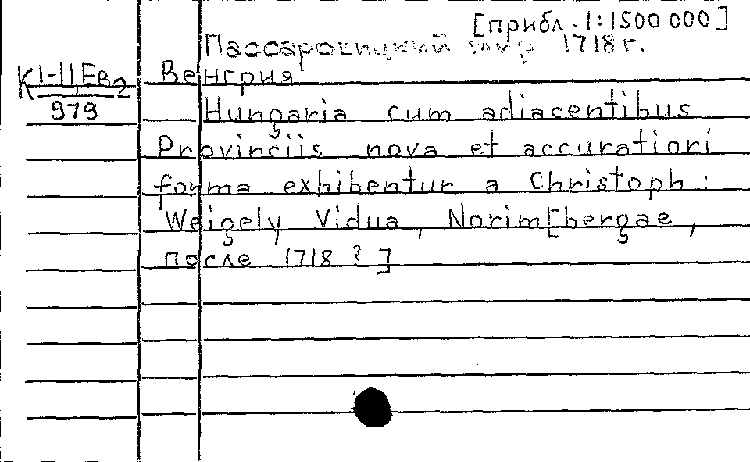 [прибл. 1:1500 000]
Пассаровицкий мир 1718 г.
К 1-II Ев 2
979
Венгрия
Hungaria cum adiacentibus
Provinciis nova et accuratiori
forma exhibentur a Christoph:
Weigely Vidua, Norim[bergae,
после 1718 ? ]